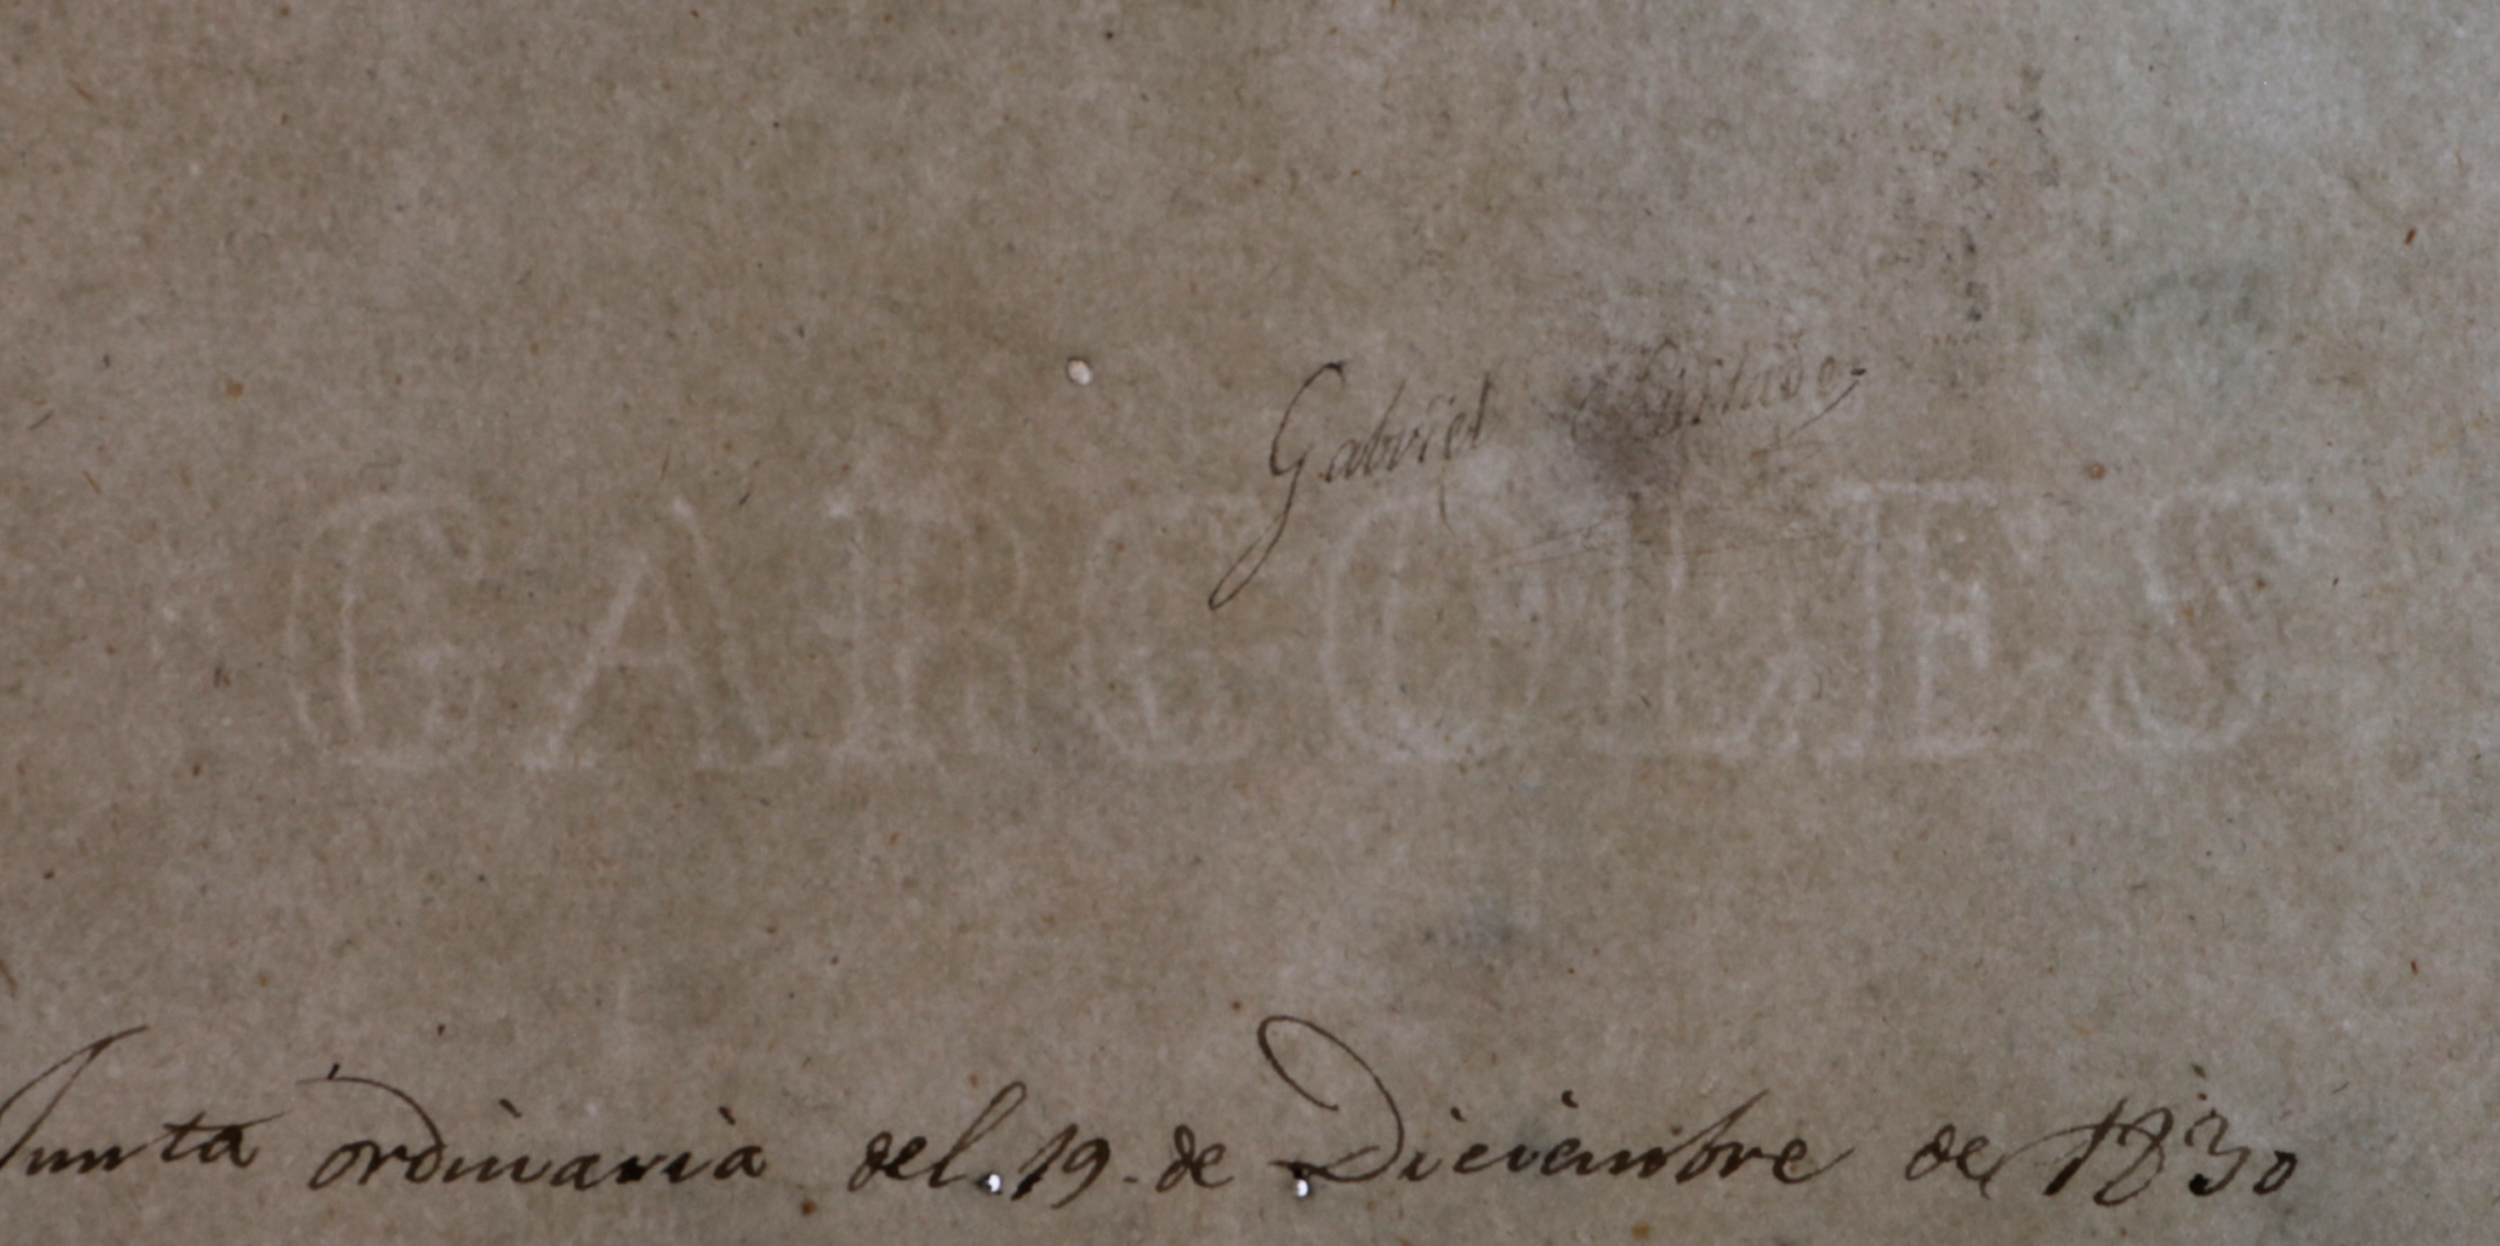 Gabriel Hurtado
GARGOLES
Junta ordinaria del 19. de Diciembre de 1830